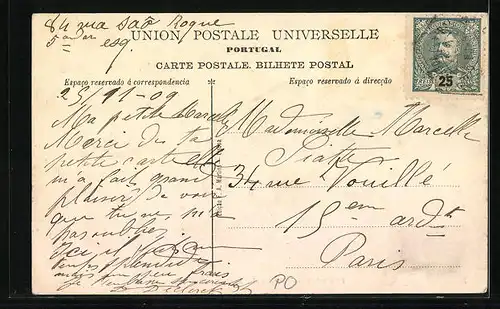 84 rua São Roque
5º andar esq.
UNION POSTALE UNIVERSELLE
PORTUGAL
CARTE POSTALE. BILHETE POSTAL
Espaço reservado á correspondencia
Espaço reservado á direcção
25
25/11-09
Ma petite Marcelle
Merci de ta
petite carte elle
m'a fait grand
plaisir de voir
que tu ne m'a
pas oublié
Ici il
temps splendide
mais un peu frais
je t'embrasse
Mademoiselle Marcelle
34 rue Vouillé
15em ardt
Paris
PO